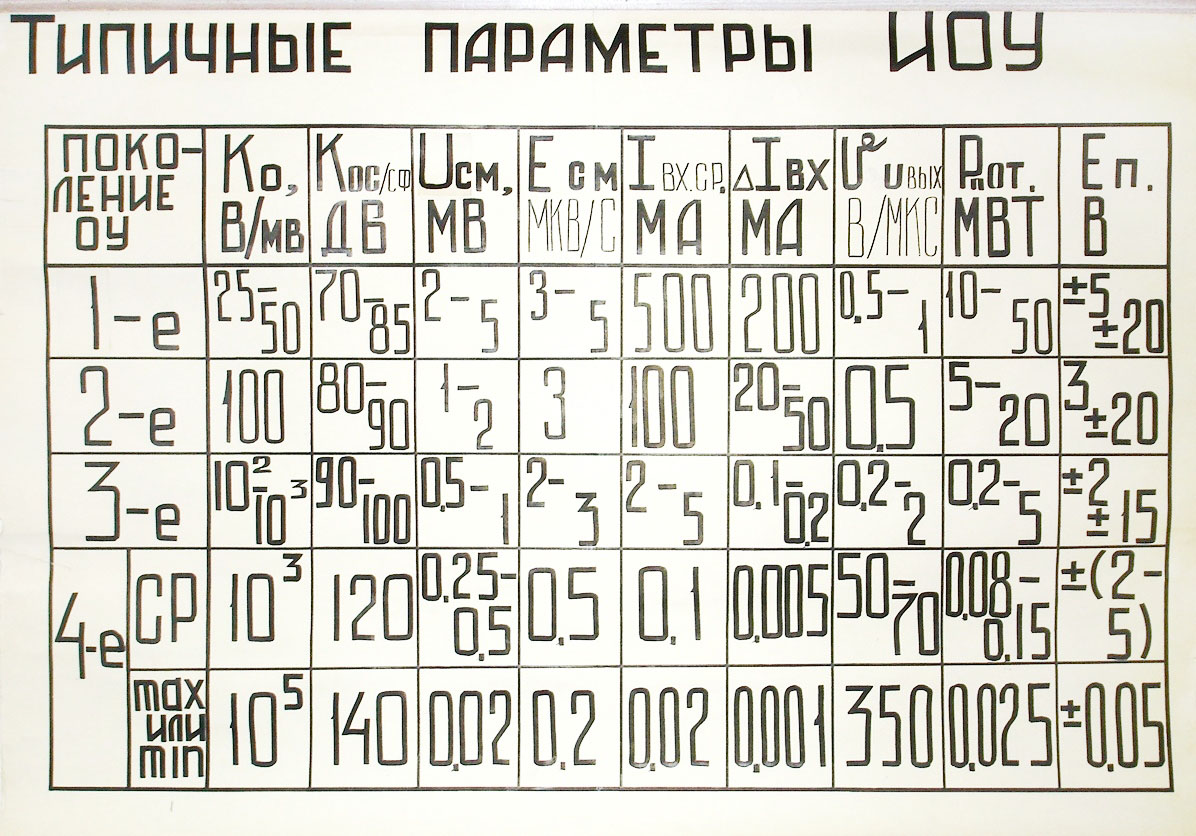 ТИПИЧНЫЕ ПАРАМЕТРЫ ИОУ
ПОКО-
ЛЕНИЕ
ОУ
Ко,
В/мв
Кос/сф
ДВ
Uсм,
МВ
Е см
МКВ/С
I вх.ср.
МА
ΔI вх
МА
U вых
В/МКС
Рпот.
МВТ
Еп.
В
1-е
25-
50
70-
85
2-
5
3-
5
500
200
0,5-
1
10-
50
±5
±20
2-е
100
80-
90
1-
2
3
100
20-
50
0,5
5-
20
3
±20
3-е
10²-
10³
90-
100
0,5-
1
2-
3
2-
5
0,1-
0,2
0,2-
2
0,2-
5
±2
±15
4-е
СР
10³
120
0,25-
0,5
0,5
0,1
0,005
50-
70
0,08-
0,15
±(2-
5)
max
или
min
10⁵
140
0,02
0,2
0,02
0,001
350
0,025
±0,05